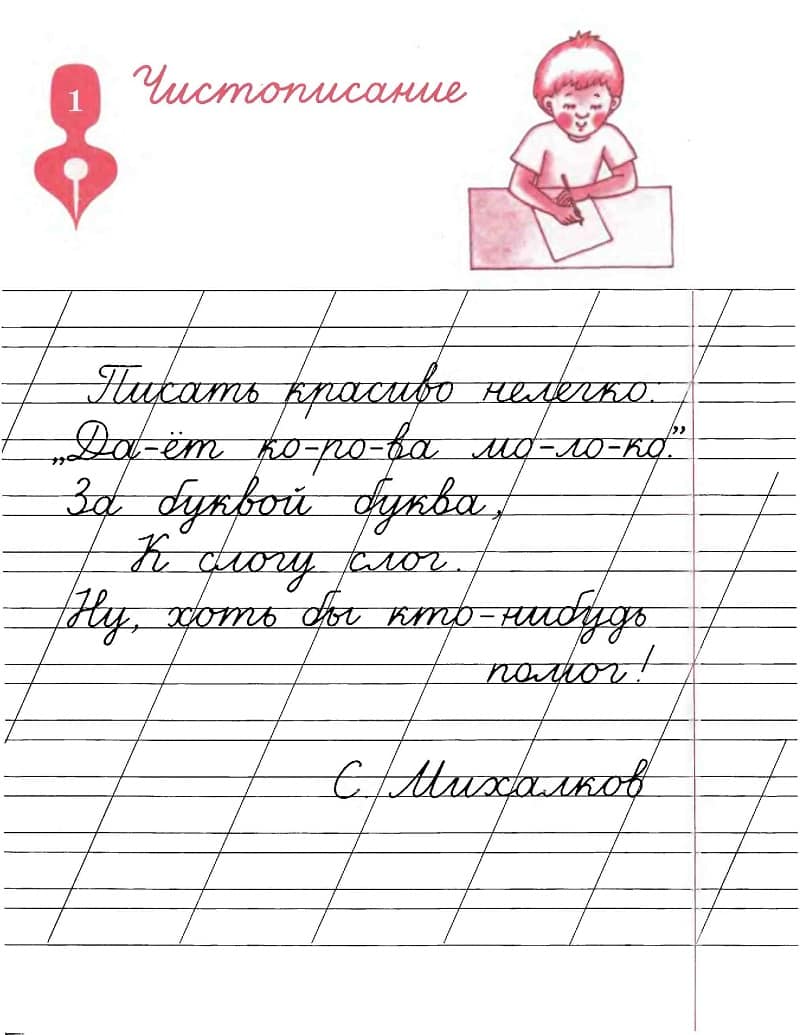 1
Чистописание
Писать красиво нелегко:
„Да-ёт ко-ро-ва мо-ло-ко.”
За буквой буква,
К слогу слог.
Ну, хоть бы кто-нибудь
помог!
С. Михалков